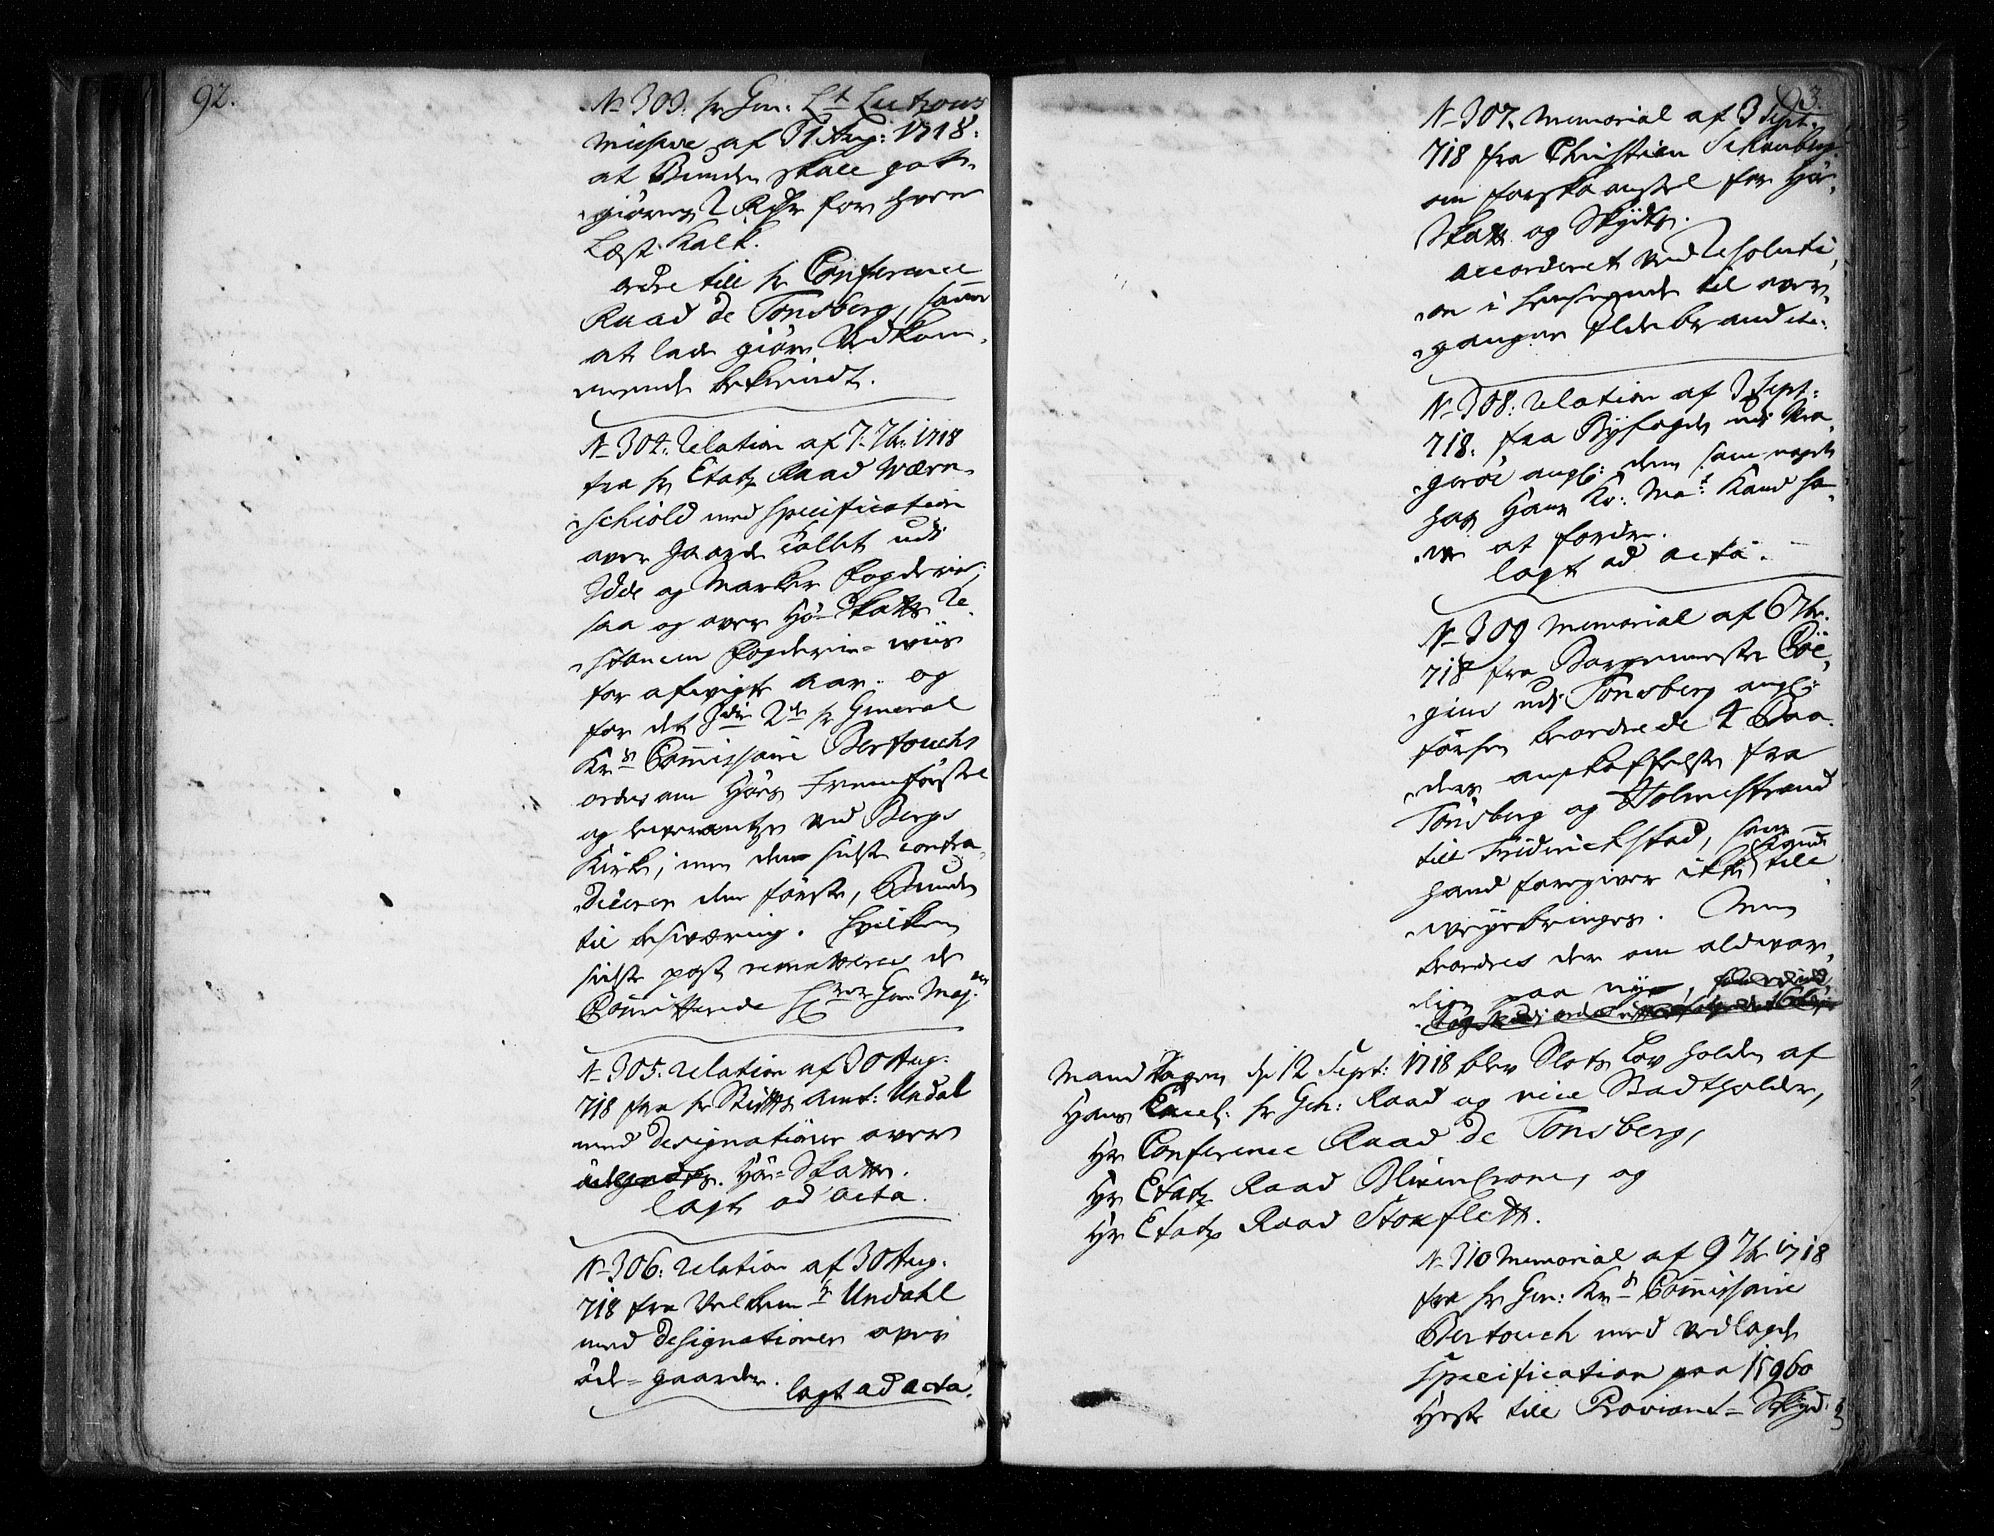 92.
No 303. hr Gen: Lt Lützous
Missive af 31 Aug: 1718.
at Bunden skall got-
giöres 2 Rdr for hver
Læst Kalk.
ordre till hr Conference
Raad de Tonsberg, samme
at lade giöre Vedkom-
mende bekiendt.
No 304. Relation af 7. 7br. 1718
fra hr Etatz Raad Wærn-
schiold med specification
over Gaarde Tallet udi
Idde og Marker Fogderie,
saa og over Hö-Skatts Re-
stancen Fogderie-wiis
for afvigte aar. og
for det 3die 2de hr General
Krs Commissaire Bertouchs
ordre om Höets Fremförsel
og leverantze ved Bergs
Kirke, men den sidste contra-
dicerer den förste, Bunden
til besværing. Hvilken
sidste post remitteres de
Committerede Hrer Gen: Maj:er
No 305. Relation af 30 Aug:
718 fra hr Stiftts Amt: Undal
med Designationer over
Hö-Skatten.
lagt ad acta.
No 306: Relation af 30 Aug.
718 fra Velbemte Undahl
med Designationer over
öde-gaarder. lagt ad acta.
93.
No 307. Memorial af 3 Sept.
718 fra Christian Schouboe
om forskaansel for Hö-
Skatt og Skyds.
accorderet ved Resoluti-
on i henseende til over-
gangne Ildebrand etc.
No 308: Relation af 3 Sept:
718. fra Byfogden udi Kra-
geröe angl: dem som noget
hos Hans Ko: Mat: Kand ha-
ve at fordre.
lagt ad acta.
No 309 Memorial af 6 7br.
718 fra Borgemester Cöl-
gine udi Tonsberg angl:
försen beordrede 4 Baa-
ders anskaffelse fra
Tönsberg og Holmestrand
till Friderichstad, som
hand foregiver ikke kand till
veyebringes. Mens
beordres der om alvor-
lig paa nye,
Mandagen d 12 Sept: 1718 blev Slots Lov holden af
Hans Excel: hr Geh: Raad og vice Stadtholder,
Hr Conference Raad de Tonsberg,
Hr Etatz Raad Blixencrone, og
Hr Etatz Raad Stockfleth.
No 310 Memorial af 9 7br 1718
fra hr Gen: Krs Commissaire
Bertouch med vedlagde
specification paa 15960
Heste till Proviant-Skyds